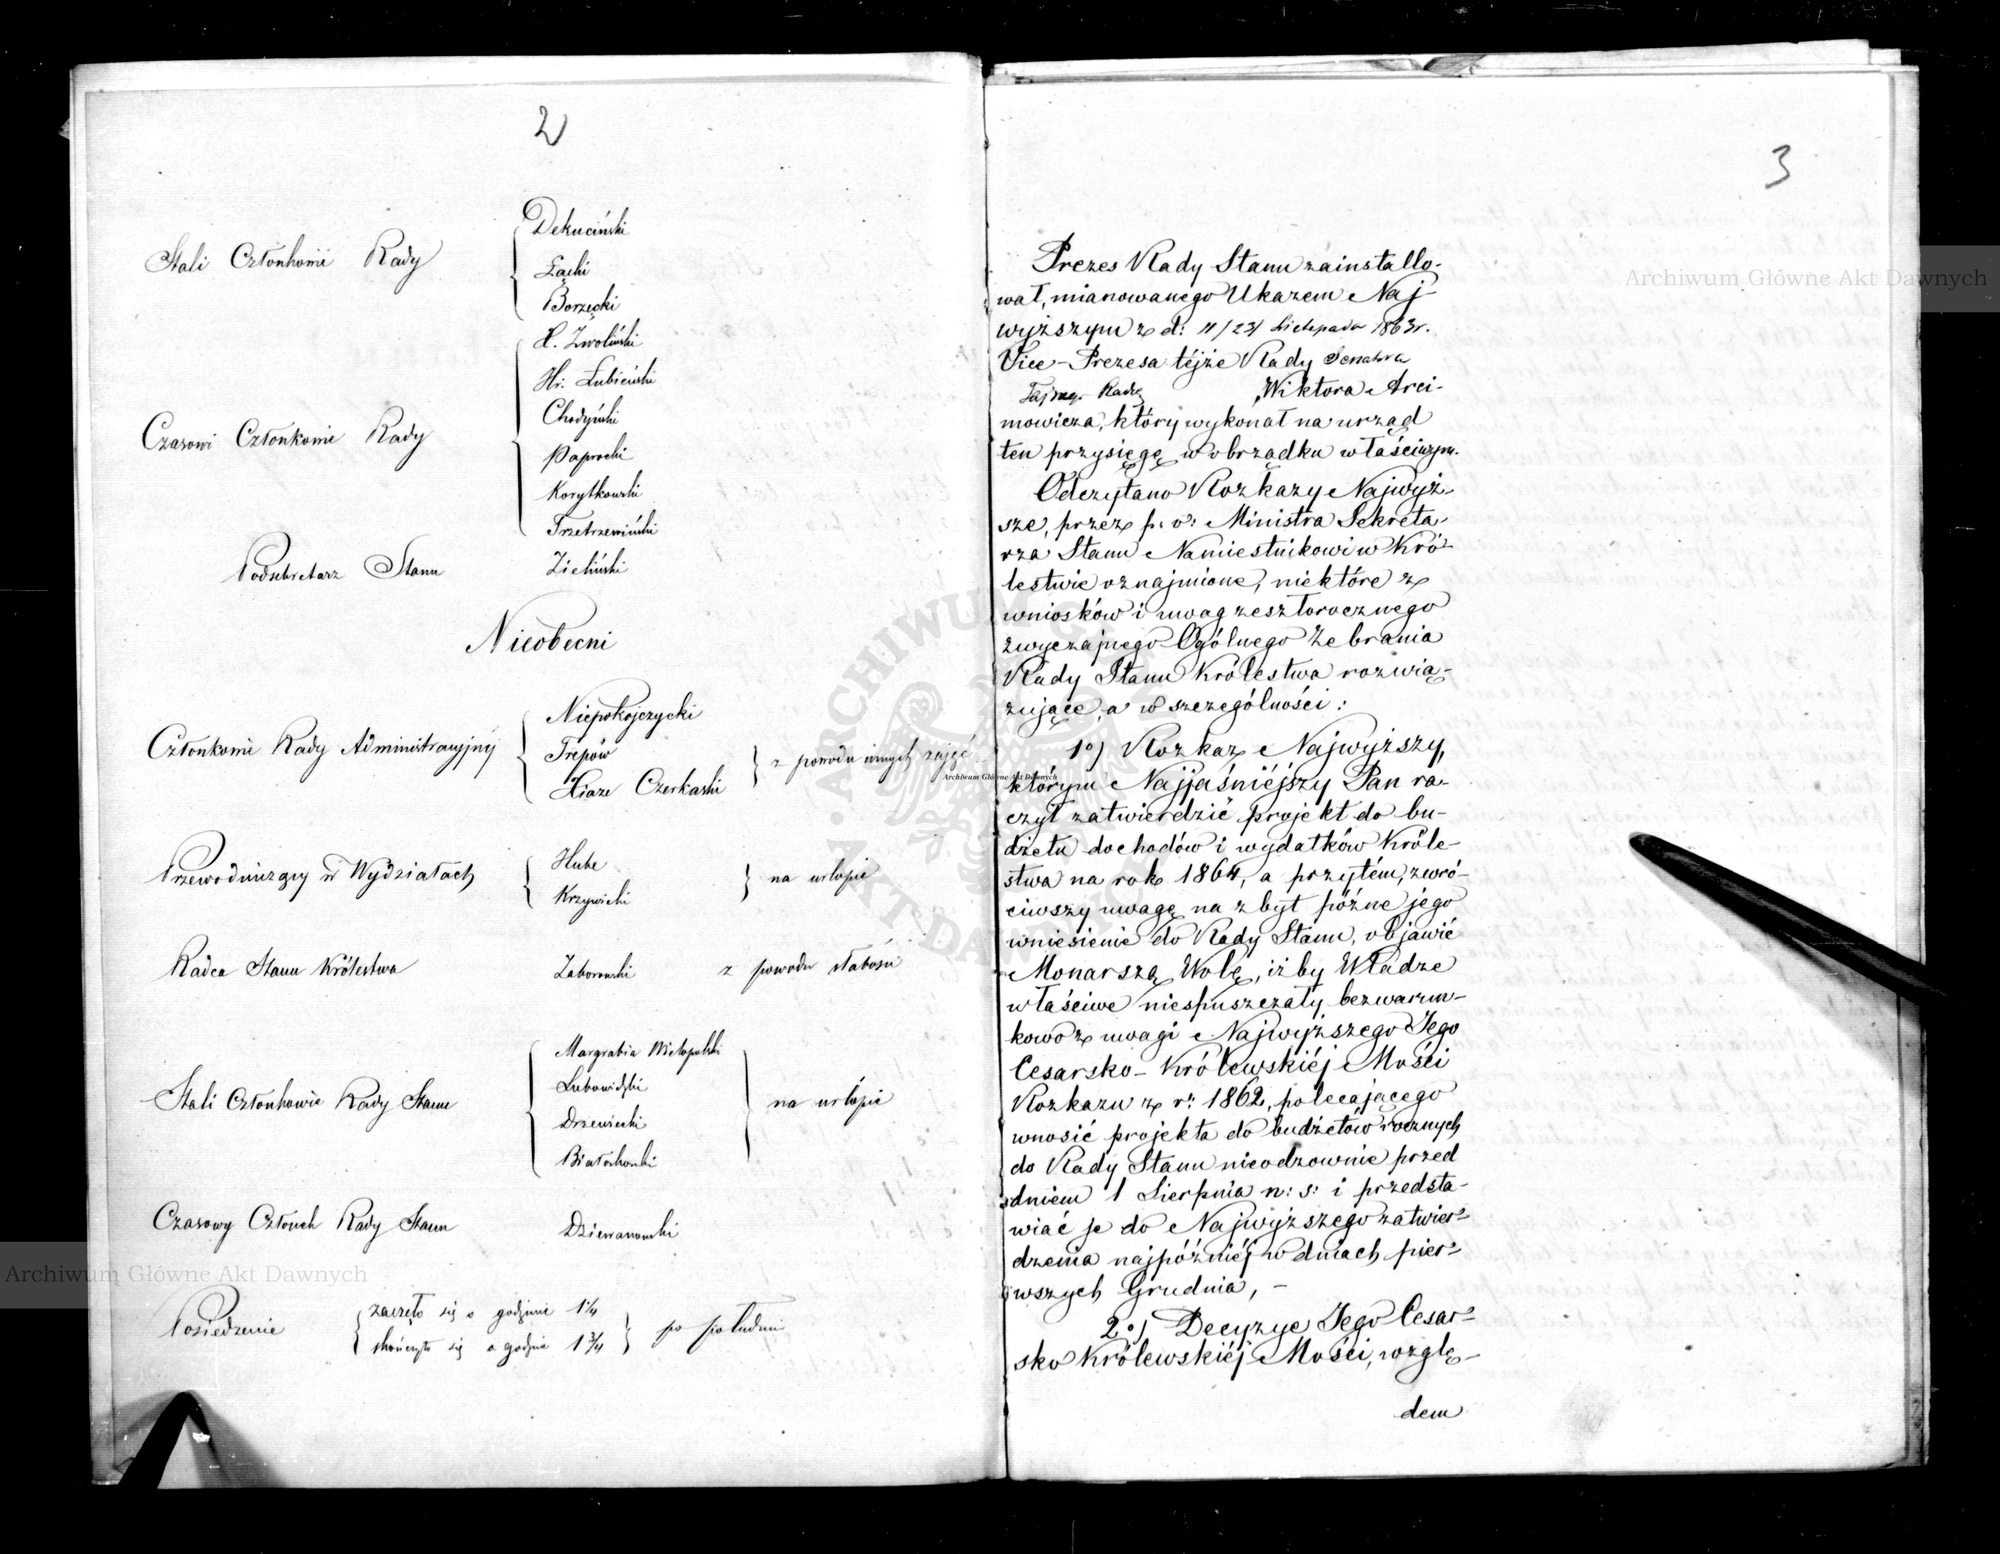 2
Stali Członkowie Rady
Dekuciński
Łącki
Borzęcki
Czasowi Członkowie Rady
X. Zwoliński
Hr: Łubieński
Chodyński
Paprocki
Korytkowski
Trzetrzewiński
Podsekretarz Stanu Zieliński
Nieobecni
Członkowie Rady Administracyjnej
Niepokojczycki
Trepów
Xiąże Czerkaski
z powodu innych zajęć
Przewodniczący w Wydziałach
Hube
Krzywicki
na urlopie
Radca Stanu Królestwa Zaborowski z powodu słabości
Stali Członkowie Rady Stanu
Margrabia Wielopolski
Lubowidzki
Drzewiecki
Białoskórski
na urlopie
Czasowy Członek Rady Stanu Dziewanowski
Posiedzenie
zaczęło się o godzinie 1 1/4
skończyło się o godzinie 1 3/4
po południu
3
Prezes Rady Stanu zainstallo-
wał, mianowanego Ukazem Naj-
wyższym z d: 11/23 Listopada 1863r.
Vice-Prezesa téjże Rady Senatora
Tajneg. Radcę Wiktora Arci-
mowicza, który wykonał na urząd
ten przysięgę w obrządku właściwym.
Odczytano Rozkazy Najwyż-
sze, przez p. o: Ministra Sekreta-
rza Stanu Namiestnikowi w Kró-
lestwie oznajmione, niektóre z
wniosków i uwag zeszłorocznego
zwyczajnego Ogólnego Zebrania
Rady Stanu Królestwa rozwią-
zujące, a w szczególności:
1o) Rozkaz Najwyższy,
którym Najjaśniéjszy Pan ra-
czył zatwierdzić projekt do bu-
dżetu dochodów i wydatków Króle-
stwa na rok 1864, a przytém, zwró-
ciwszy uwagę na zbyt późne jego
wniesienie do Rady Stanu, objawić
Monarszą Wolę, iżby Władze
właściwe niespuszczały bezwarun-
kowo z uwagi Najwyższego Jego
Cesarsko-Królewskiéj Mości
Rozkazu z r: 1862, polecającego
wnosić projekta do budżetów rocznych
do Rady Stanu nieodzownie przed
dniem 1 Sierpnia n: s: i przedsta-
wiać je do Najwyższego zatwier-
dzenia najpóźniéj w dniach pier-
wszych Grudnia, -
2o) Decyzye Jego Cesar-
sko Królewskiéj Mości, wzglę-
dem
Archiwum Główne Akt Dawnych
Archiwum Główne Akt Dawnych
Archiwum Główne Akt Dawnych